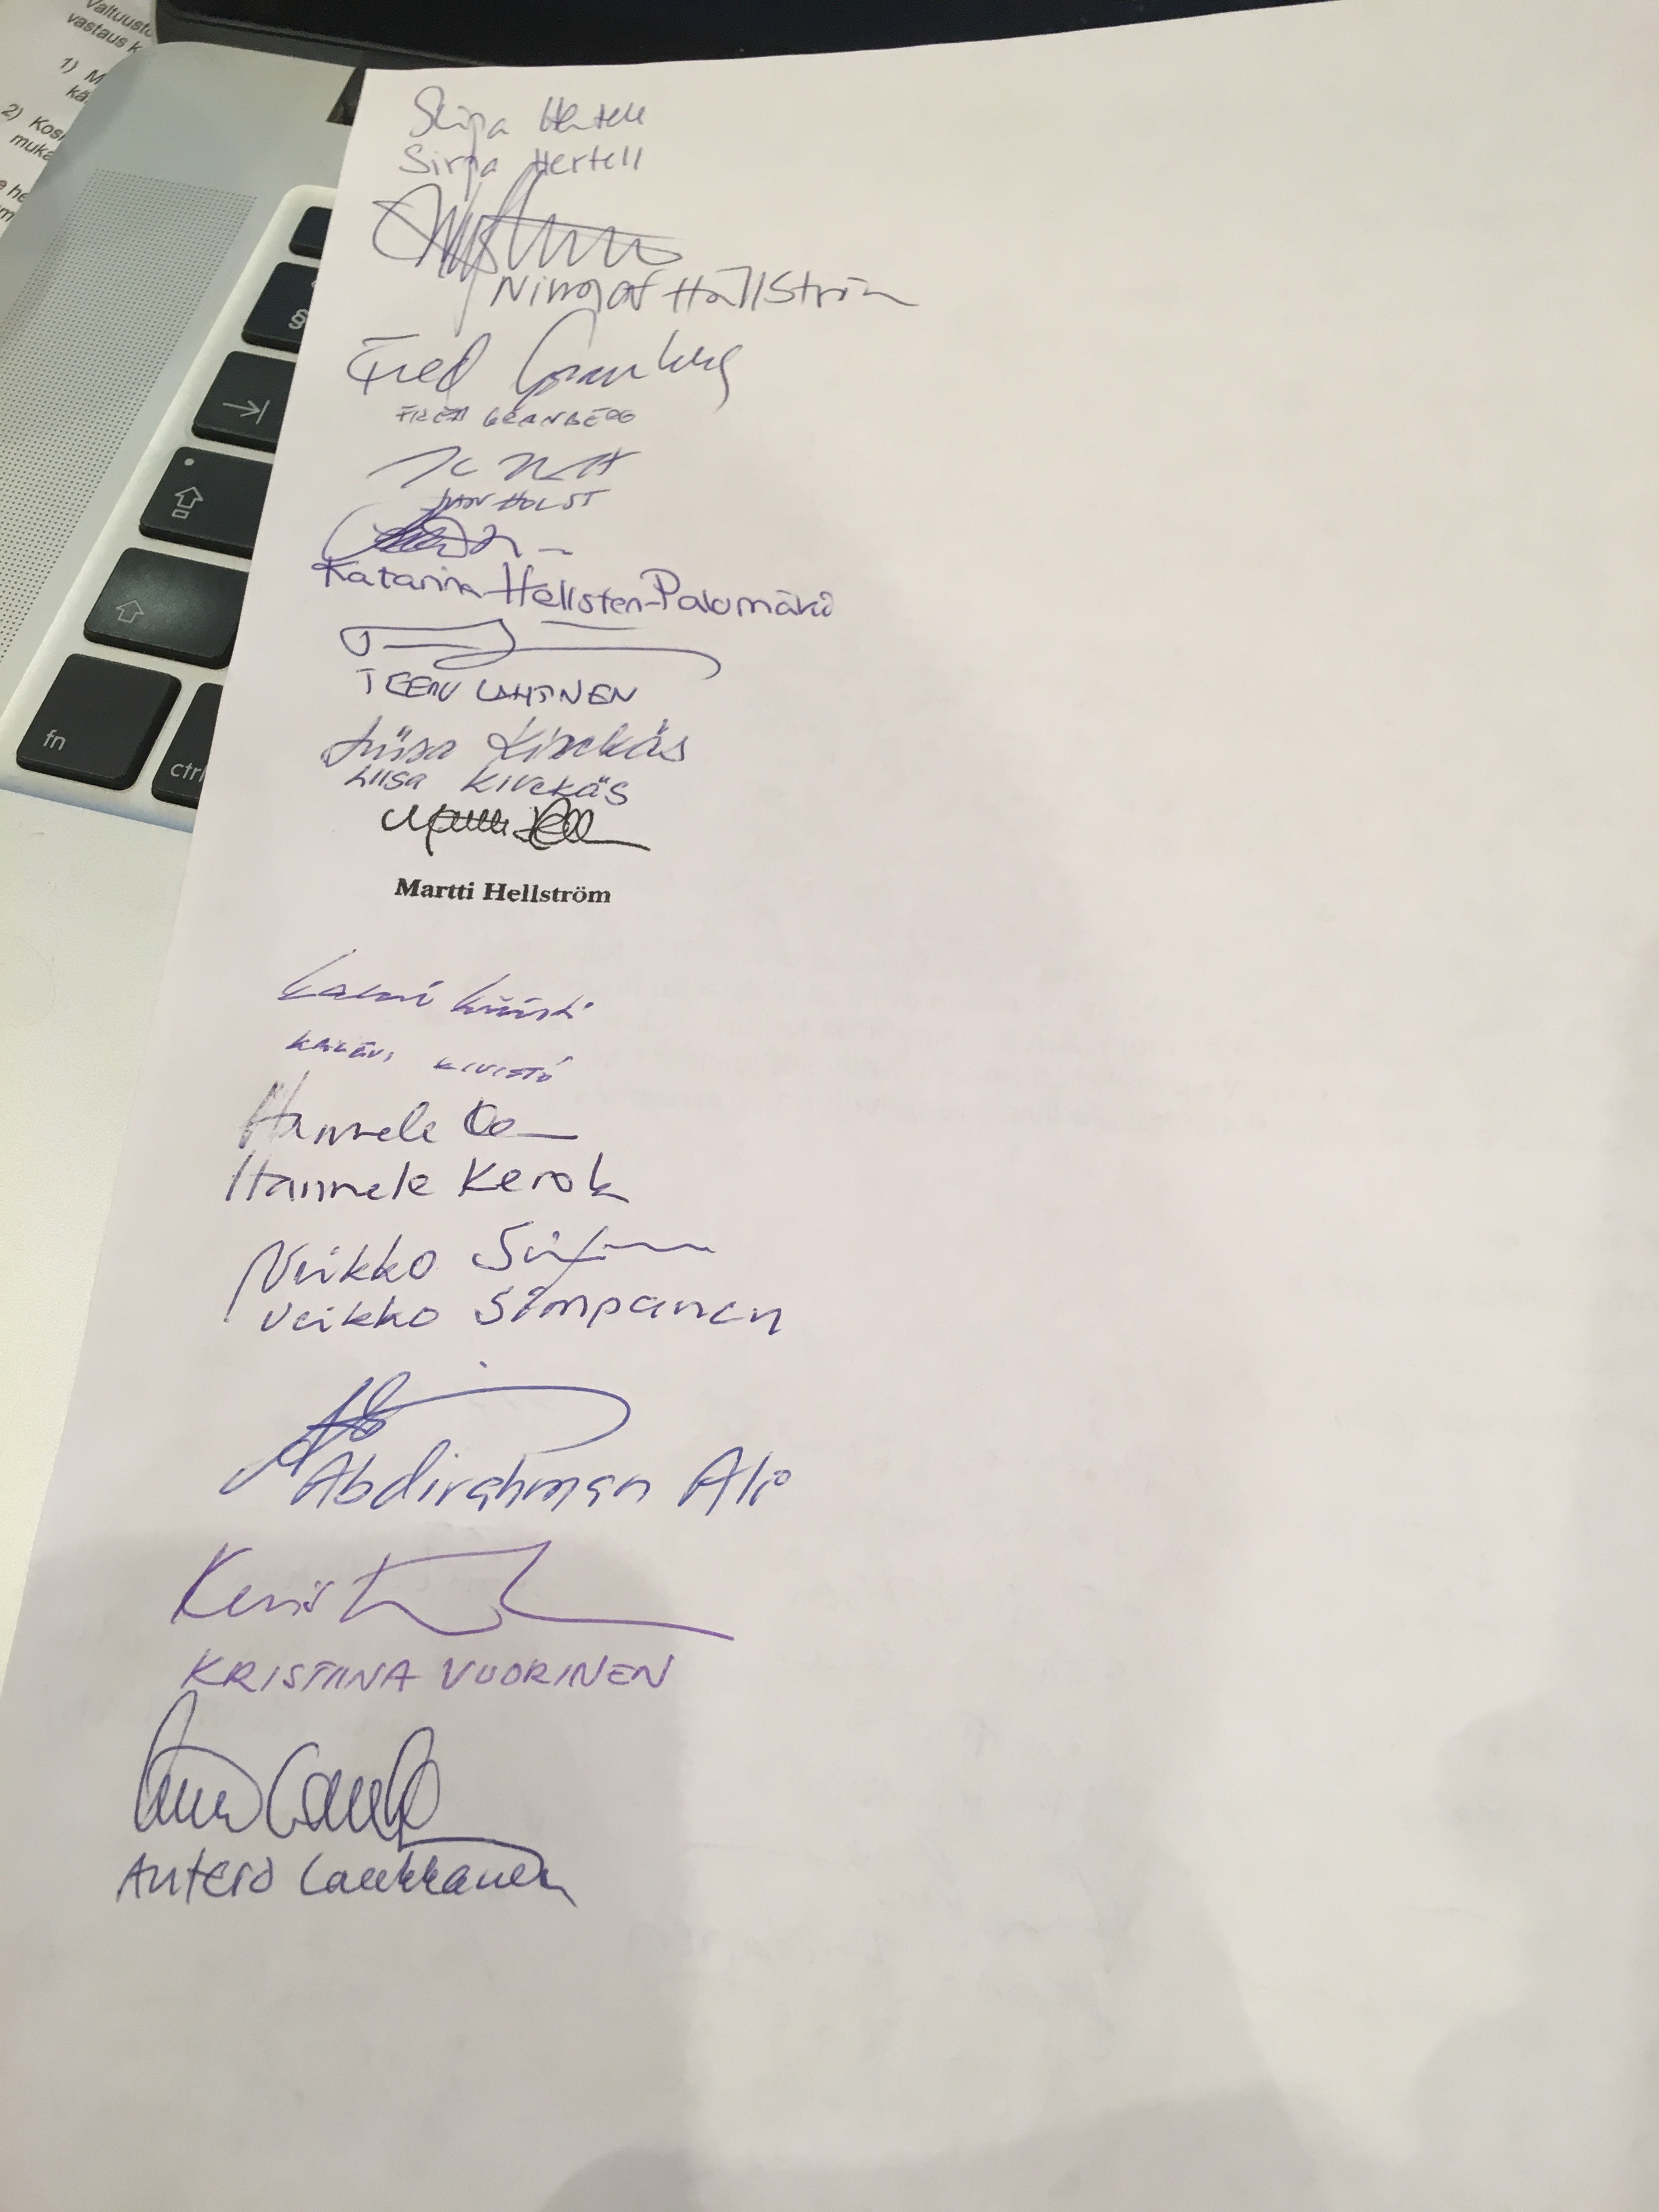 valtuusto
vastaus k
1) M
kä
2) Kos
muka
a he
m
§
fn
ctrl
Sirpa Hertell
Sirpa Hertell
Hällström
Fred Granberg
FRED GRANBERG
HOLST
Katarina Hellsten-Palomäki
TEEMU LAHTINEN
Liisa Kivekäs
LIISA KIVEKÄS
Martti Hellström
Kalevi Kivistö
KALEVI KIVISTÖ
Hannele
Hannele Kerola
Veikko
Veikko Simpanen
Abdirahman Ali
KRISTIINA VUORINEN
Antero Laukkanen